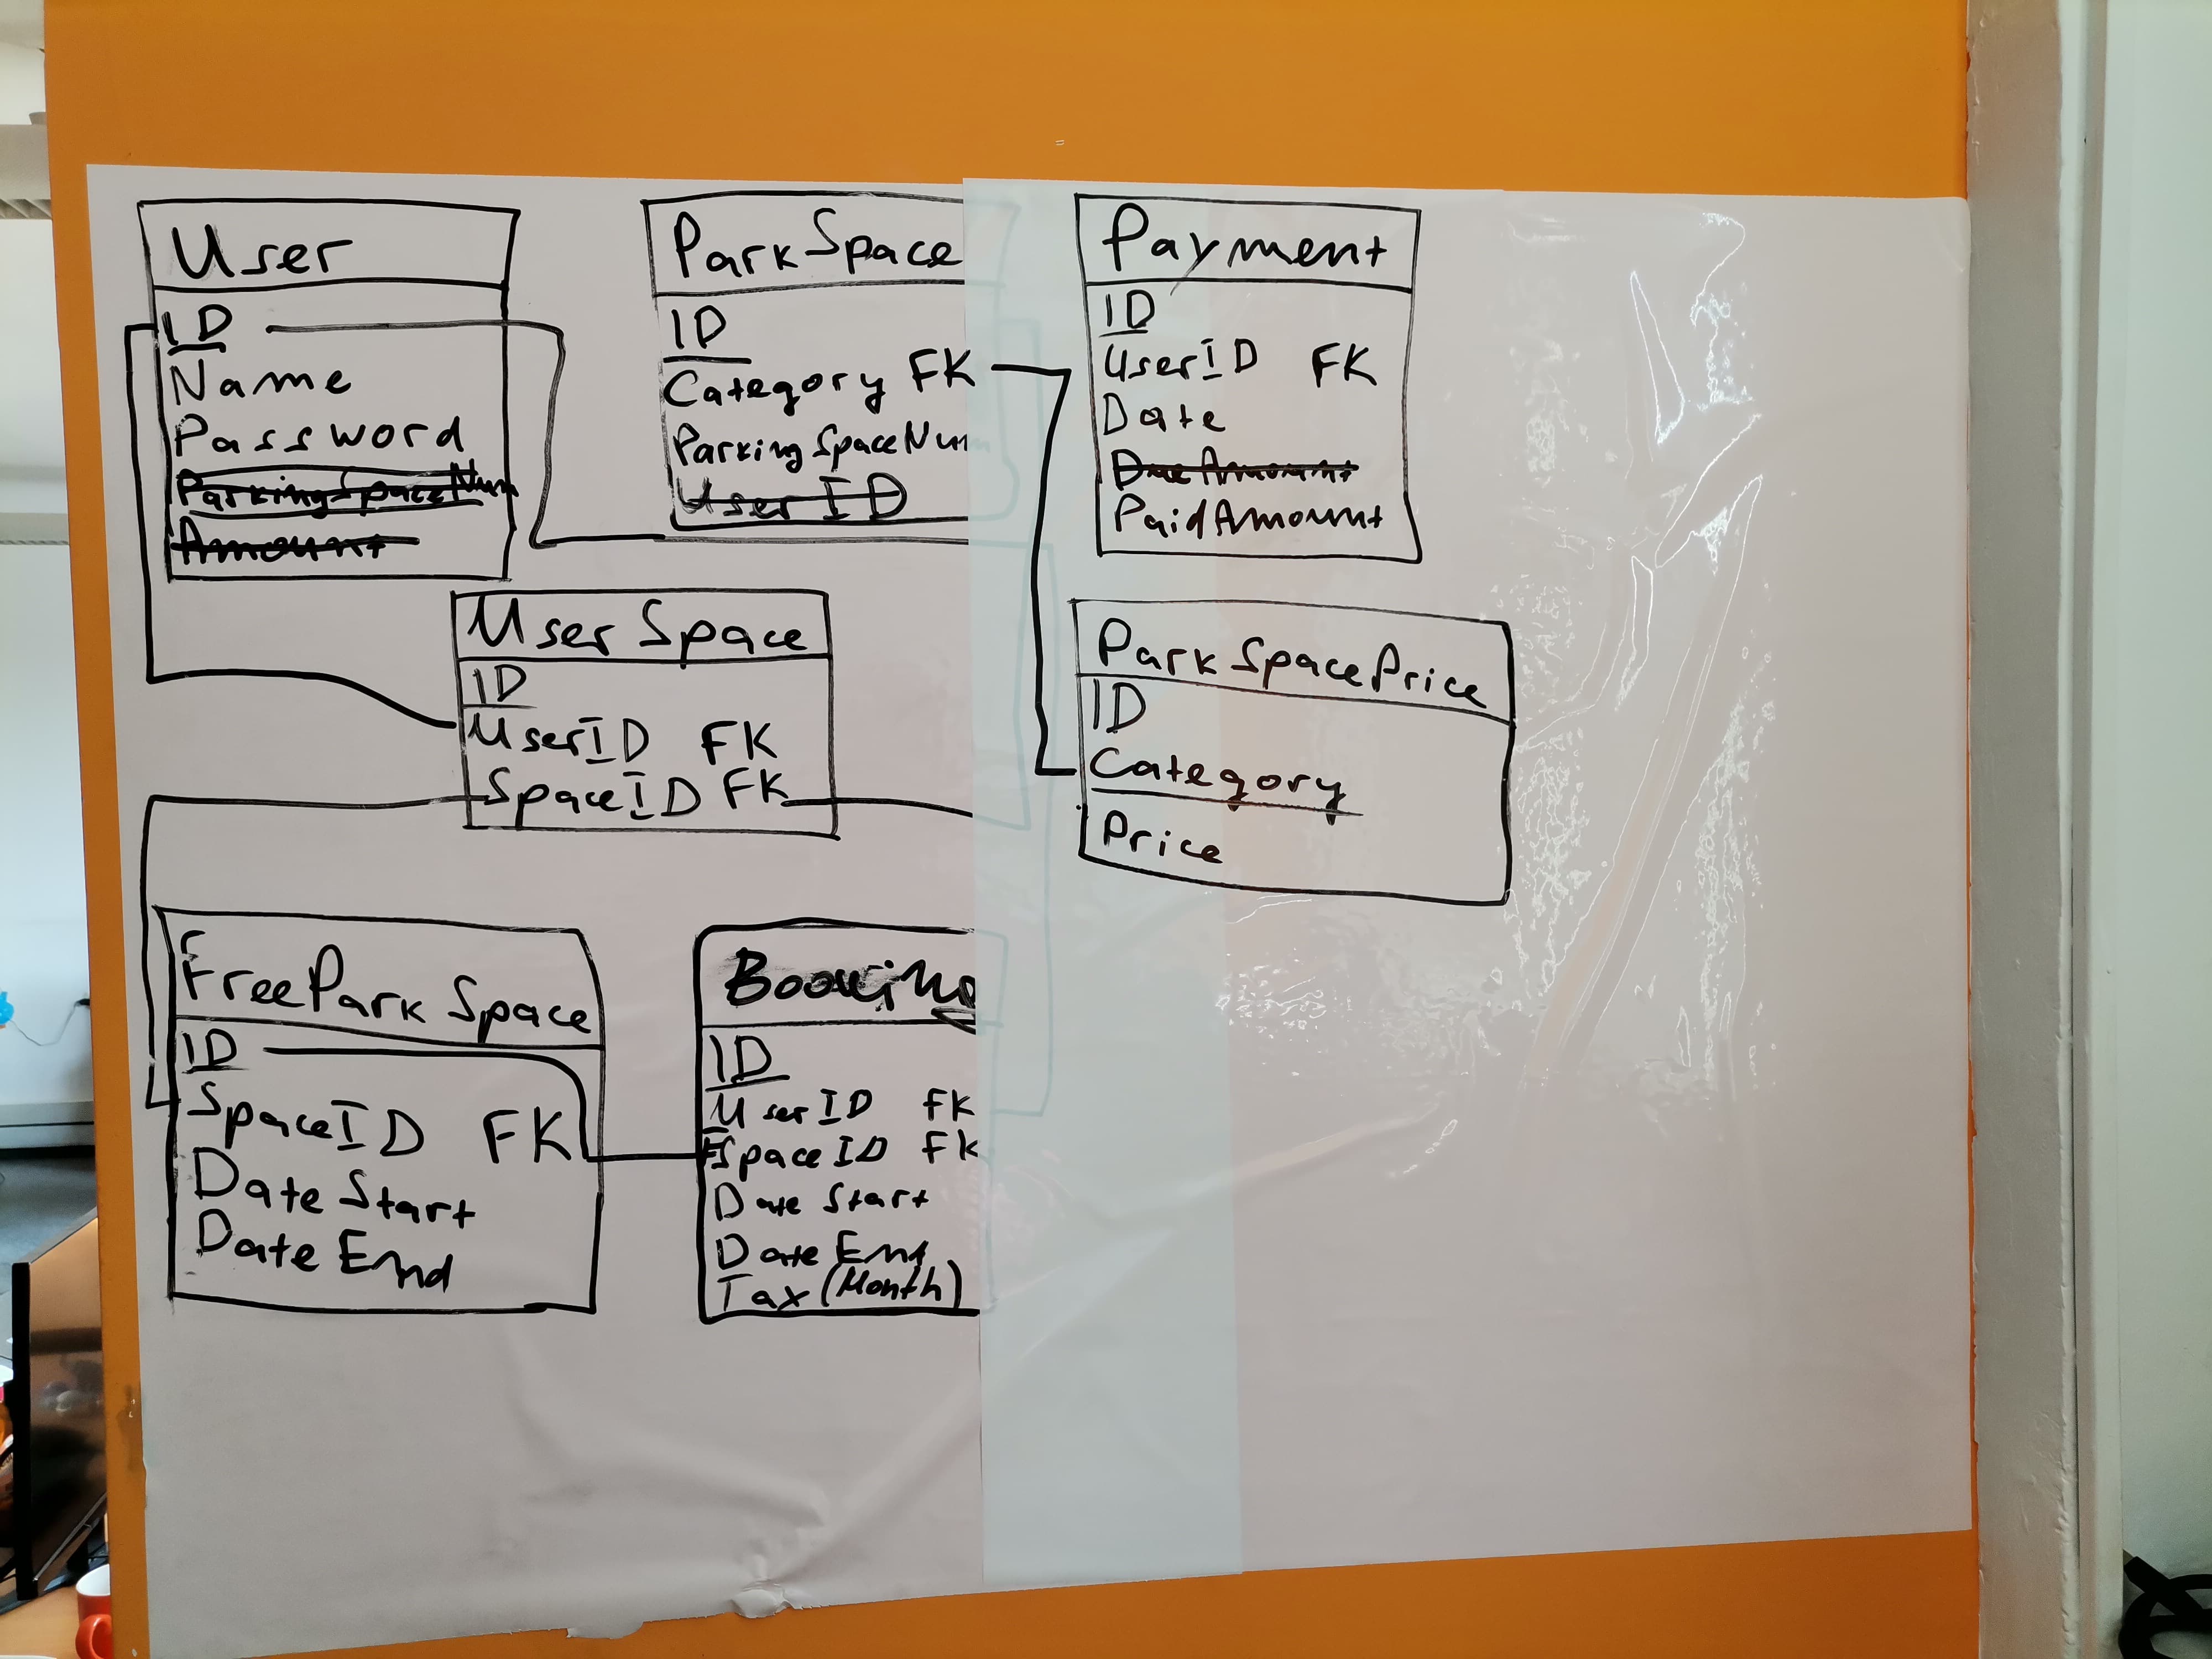 User
ID
Name
Password
ParkingSpaceNum
Amount
ParkSpace
ID
Category FK
ParkingSpaceNum
UserID
Payment
ID
UserID FK
Date
DueAmount
PaidAmount
UserSpace
ID
UserID FK
SpaceID FK
ParkSpacePrice
ID
Category
Price
FreeParkSpace
ID
SpaceID FK
DateStart
DateEnd
Booking
ID
UserID FK
FSpaceID FK
Date Start
Date End
Tax (Month)